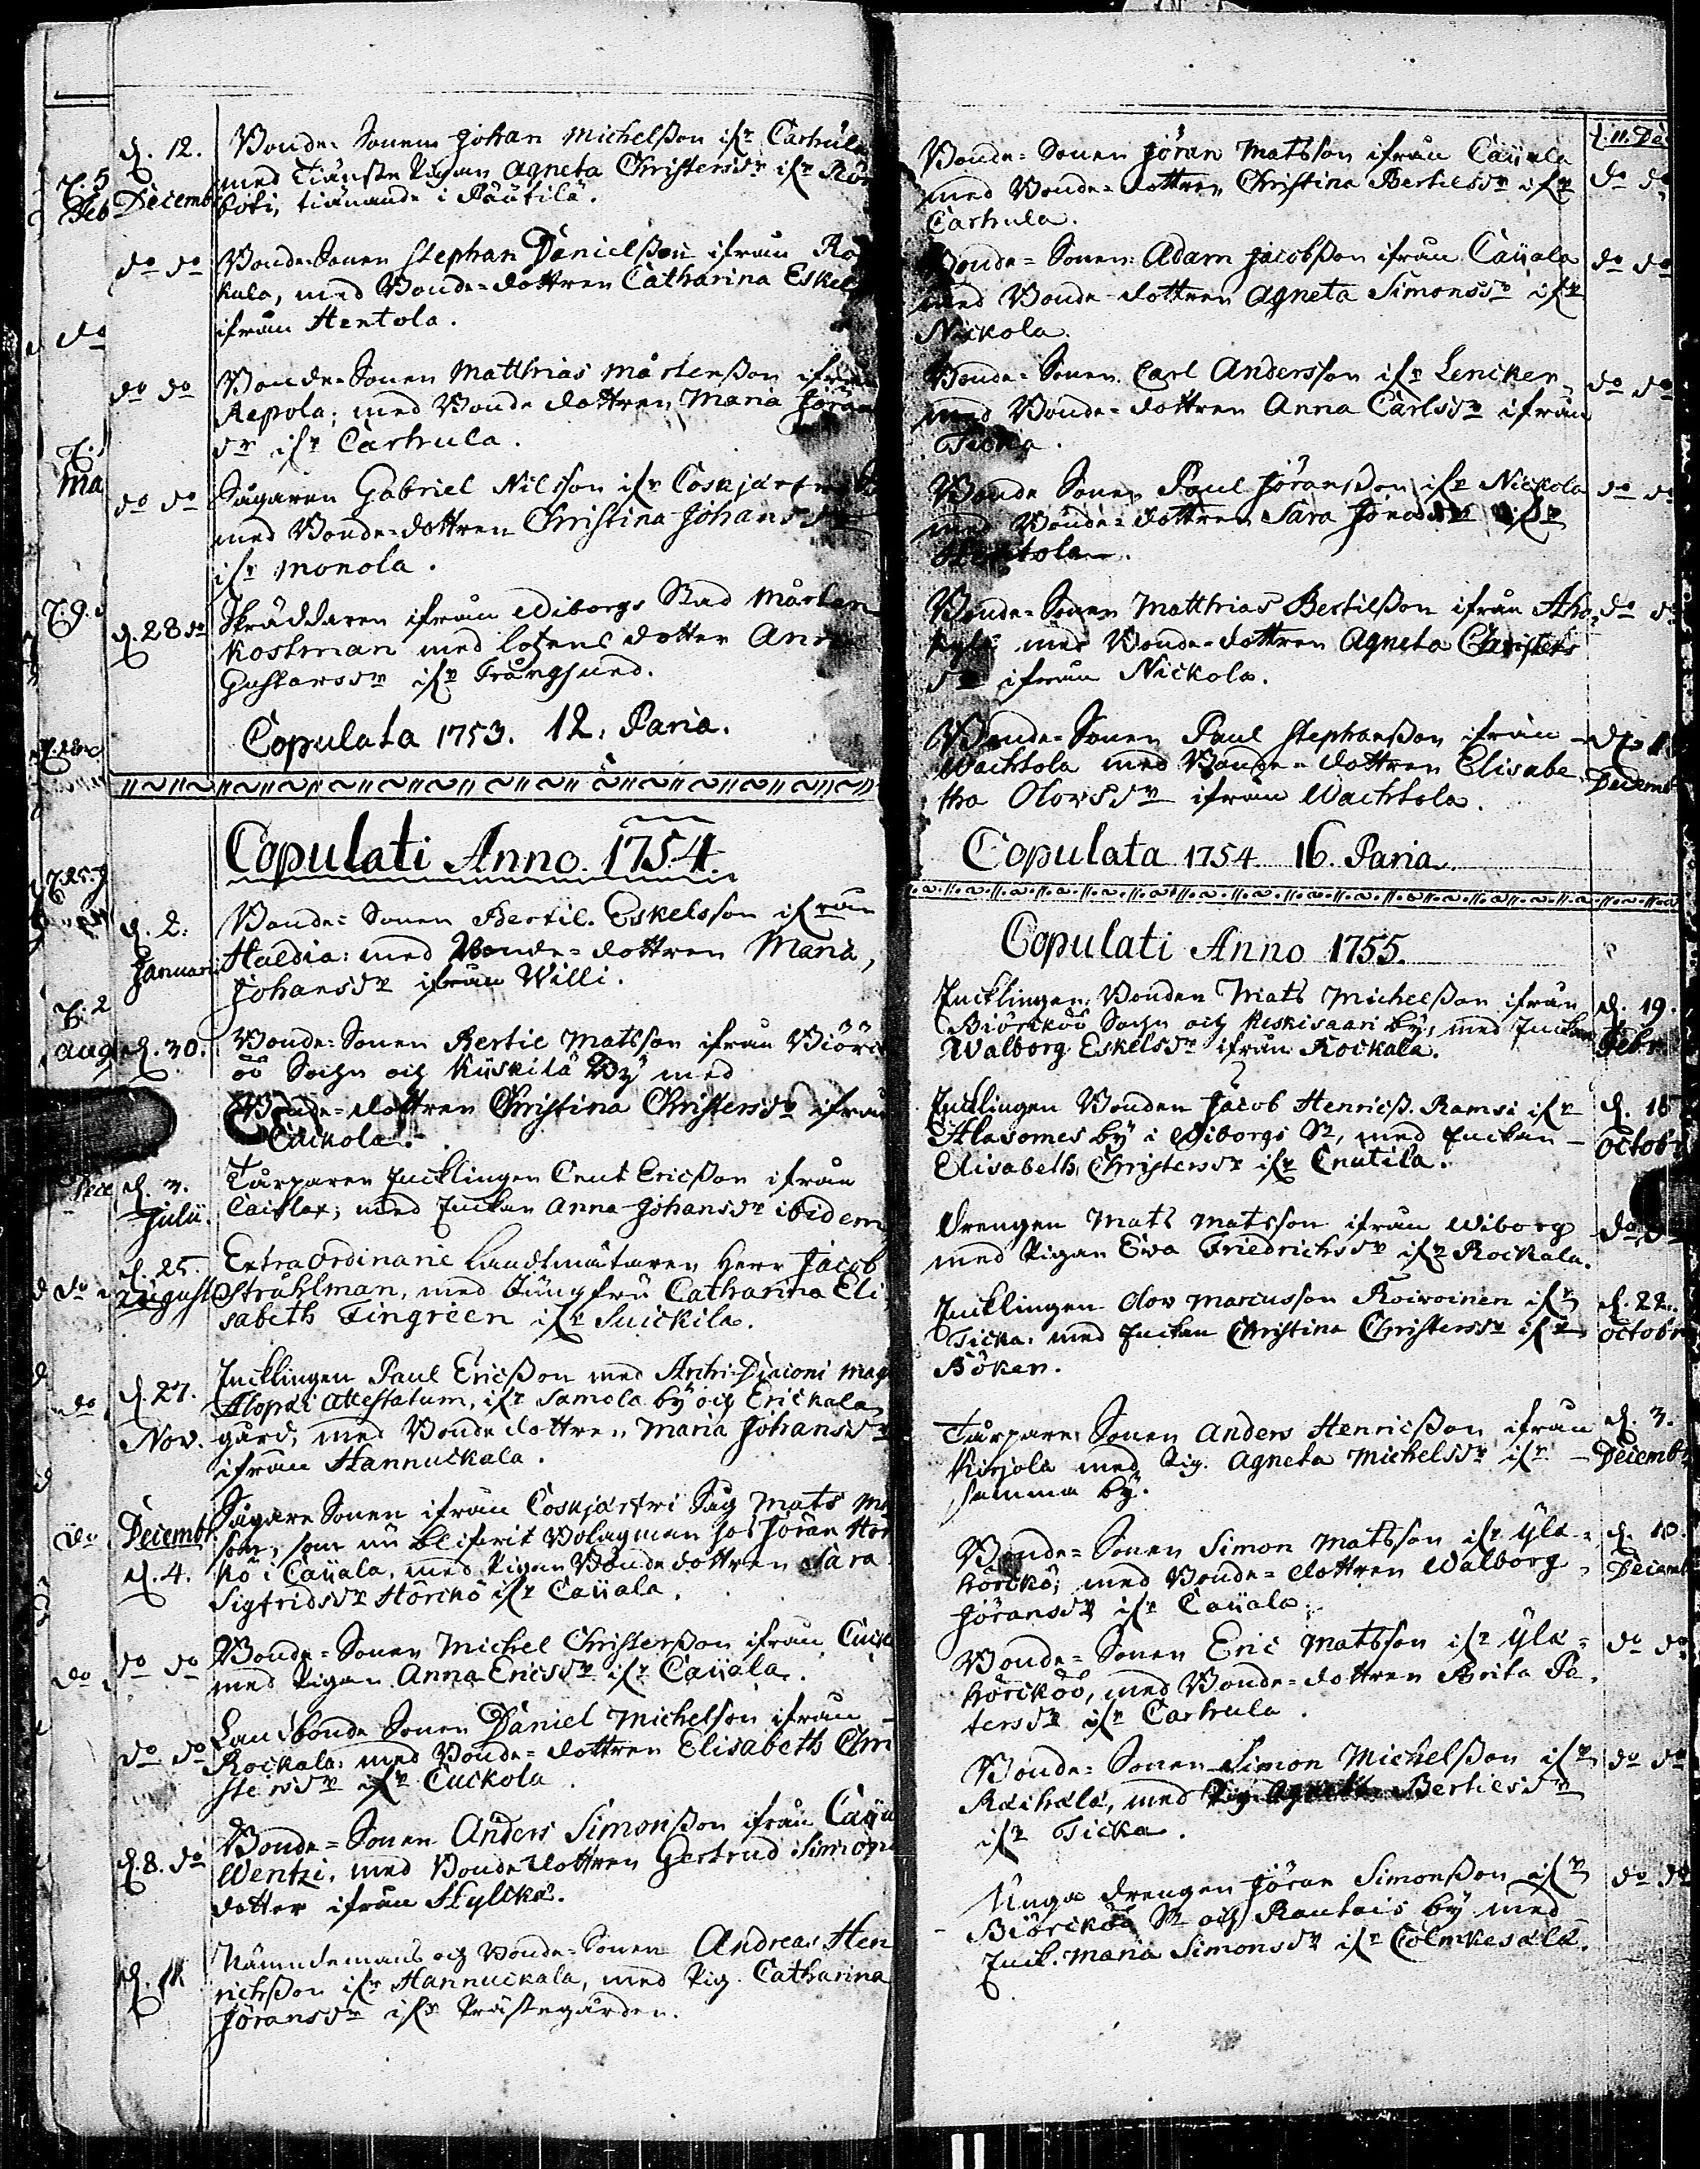 d. 12.
Decemb
Bonde-Sonen Johan Michelsson ifr Carhula
med Tiänste Pigan Agneta Christersdr ifr
tienande i Päätilä.
do do
Bonde-Sonen Stephan Danielsson ifrån
kala, med Bonde-dottren Catharina Eskels
ifrån Hentola.
do do
Bonde-Sonen Matthias Mårtensson ifrån
Repola, med Bonde dottren Maria Jöran
dr ifr Carhula.
do do
Sågaren Gabriel Nilsson ifr Coskjärfvi
med Bonde-dottren Christina Johansdr
ifr Monola.
d. 28 do
Skräddaren ifrån Wiborgs Stad Mårten
Kostman med lotzens dotter Anna
Gustavsdr ifr Trångsund.
Copulata 1753. 12. Paria.
Copulati Anno 1754.
d. 2.
Januari
Bonde-Sonen Bertil Eskelsson ifrån
Haldia: med Bonde-dottren Maria
Johansdr ifrån Willi.
d. 30.
Bonde-Sonen Bertil Matsson ifrån Biörc
öö Sochn och Kiiskilä By med
Bonde-dottren Christina Christersdr ifrån
Cuckola.
d. 3.
Julii.
Tårparen Encklingen Cnut Ericsson ifrån
Caislax; med Enckan Anna Johansdr ibidem
d. 25.
August
Extraordinarie Landtmätaren Herr Jacob
Stråhlman, med Jungfru Catharina Eli
sabeth Tingreen ifr Suickila.
d. 27.
Nov.
Encklingen Paul Ericsson med Archi-Diaconi Mag
Alopæi Attestatum, ifr Samola by och Erickala
gård, med Bonde dottren Maria Johansdr
ifrån Hannuckala.
Decembr
d. 4.
Sågare Sonen ifrån Coskjärfvi Såg Mats
son, som nu blifvit Bolagman hos Jöran Hör
kö i Caijala, med Pigan Bonde dottren Sara
Sigfridsdr Hörckö ifr Caijala.
do do
Bonde-Sonen Michel Christersson ifrån Cuck
med Pigan Anna Ericsdr ifr Caijala.
do do
Landbonde Sonen Daniel Michelson ifrån
Rockala, med Bonde-dottren Elisabeth Chri
stersdr ifr Cuckola
d. 8. do
Bonde-Sonen Anders Simonsson ifrån Caija
Wentzi, med Bonde dottren Gertrud Simons
dotter ifrån Hylckä.
d. 11
Nämndemans och Bonde-Sonen Andreas Hen
richsson ifr Hannuckala, med Pig. Catharina
Jöransdr ifr Prästegården.
d. 11. Dec
Bonde-Sonen Jöran Matsson ifrån Caijala
do do
med Bonde-dottren Christina Bertilsdr ifr
Carhula.
do do
Bonde-Sonen Adam Jacobsson ifrån Caijala
med Bonde-dottren Agneta Simonsdr ifr
Nickola.
do do
Bonde-Sonen Carl Andersson ifr Lencker
med Bonde-dottren Anna Carlsdr ifrån
Ticka.
do do
Bonde Sonen Paul Jöransson ifr Nickola
med Bonde-dottren Sara Jönsdr ifr
Hentola.
do do
Bonde-Sonen Matthias Bertilsson ifrån Aho
kylä med Bonde-dottren Agneta Christers
dr ifrån Nickola.
Bonde-Sonen Paul Stephansson ifrån
Wachtola med Bonde-dottren Elisabe
Decemb
tha Olovsdr ifrån Wachtola.
Copulata 1754 16. Paria.
Copulati Anno 1755.
d. 19.
Febr.
Encklingen Bonden Mats Michelsson ifrån
Biörcköö Sochn och Keskisaari by, med Enckan
Walborg Eskelsdr ifrån Rockala.
d. 15
Octobr
Encklingen Bonden Jacob Henricss. Ramsi ifr
Alasomes by i Wiborgs Sn, med Enckan
Elisabeth Christersdr ifr Cnutila.
do do
Drengen Mats Matsson ifrån Wiborg
med Pigan Ewa Friedrichsdr ifr Rockala.
d. 22.
Octobr
Encklingen Olov Marcusson Koivoinen ifr
Ticka: med Enckan Christina Christersdr ifr
Böken.
d. 3.
Decembr
Tårpare Sonen Anders Henricsson ifrån
Kirjola med Pig. Agneta Michelsdr ifr
samma by.
d. 10.
Decemb
Bonde-Sonen Simon Matsson ifr Ylä-
hörckö; med Bonde-dottren Walborg
Jöransdr ifr Caijala.
do do
Bonde-Sonen Eric Matsson ifr Ylä-
hörcköö, med Bonde-dottren Brita Pe
tersdr ifr Carhula.
do do
Bonde-Sonen Simon Michelsson ifr
Raihala, med Pig. Agneta Bertilsdr
ifr Ticka.
do do
Unga Drengen Jöran Simonsson ifr
Biörcköö Sn och Rautais by med
Enck. Maria Simonsdr ifr Colmkesälä.